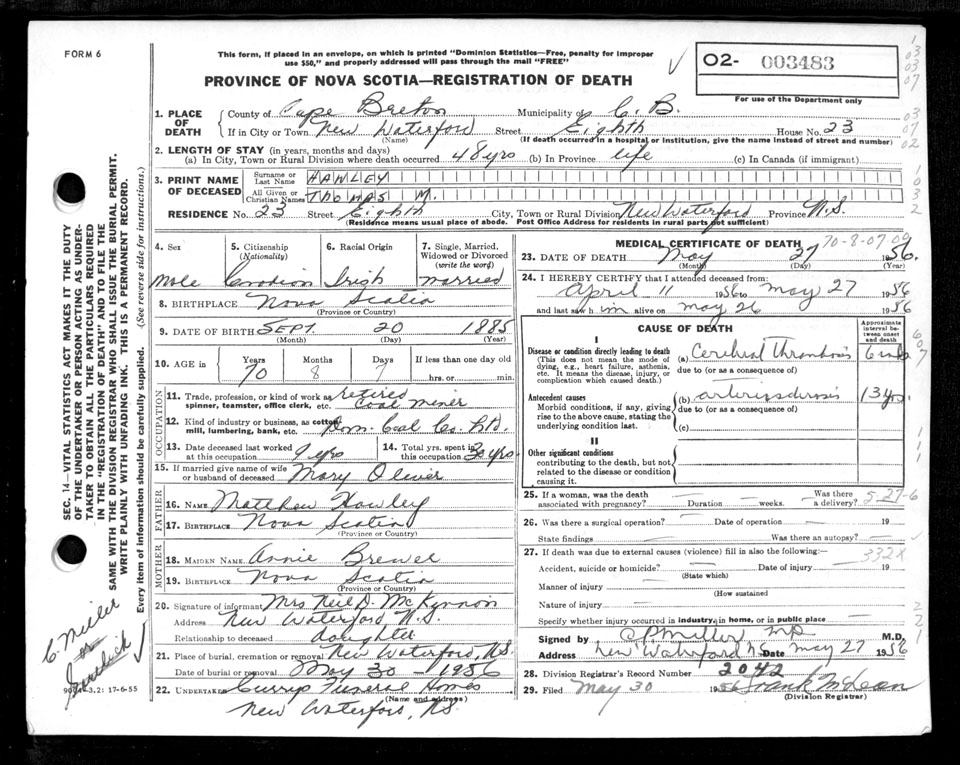 FORM 6
This form, if placed in an envelope, on which is printed "Dominion Statistics—Free, penalty for improper
use $50," and properly addressed will pass through the mail "FREE"
02- 003483
For use of the Department only
PROVINCE OF NOVA SCOTIA—REGISTRATION OF DEATH
1. PLACE OF DEATH
County of Cape Breton Municipality of C. B.
If in City or Town New Waterford Street Eighth House No. 23
(Name) (If death occurred in a hospital or institution, give the name instead of street and number)
2. LENGTH OF STAY (in years, months and days)
(a) In City, Town or Rural Division where death occurred 48 yrs (b) In Province life (c) In Canada (if immigrant)
3. PRINT NAME OF DECEASED
Surname or Last Name HAWLEY
All Given or Christian Names THOMAS M.
RESIDENCE No. 23 Street Eighth City, Town or Rural Division New Waterford Province N.S.
(Residence means usual place of abode. Post Office Address for residents in rural parts not sufficient)
4. Sex 5. Citizenship (Nationality) 6. Racial Origin 7. Single, Married, Widowed or Divorced (write the word)
Male Canadian Irish married
8. BIRTHPLACE Nova Scotia
(Province or Country)
9. DATE OF BIRTH SEPT. 20 1885
(Month) (Day) (Year)
10. AGE in Years Months Days If less than one day old
70 8 7 hrs. or min.
OCCUPATION
11. Trade, profession, or kind of work as spinner, teamster, office clerk, etc. retired Coal Miner
12. Kind of industry or business, as cotton mill, lumbering, bank, etc. Dom. Coal Co. Ltd.
13. Date deceased last worked at this occupation 9 yrs 14. Total yrs. spent in this occupation 30 yrs
15. If married give name of wife or husband of deceased Mary Oliver
FATHER
16. NAME Matthew Hawley
17. BIRTHPLACE Nova Scotia
(Province or Country)
MOTHER
18. MAIDEN NAME Annie Brewer
19. BIRTHPLACE Nova Scotia
(Province or Country)
20. Signature of informant Mrs Neil D. McKynnon
Address New Waterford N.S.
Relationship to deceased daughter
21. Place of burial, cremation or removal New Waterford, N.S.
Date of burial or removal May 30 - 1956
22. UNDERTAKER Funeral Homes
(Name and address)
New Waterford, N.S.
MEDICAL CERTIFICATE OF DEATH 70-8-07 09
23. DATE OF DEATH May 27 1956
(Month) (Day) (Year)
24. I HEREBY CERTIFY that I attended deceased from
April 11 1956 to May 27 1956
and last saw him alive on May 26 1956
CAUSE OF DEATH
Approximate interval between onset and death
I
Disease or condition directly leading to death (a) Cerebral Thrombosis 6 wks
(This does not mean the mode of dying, e.g., heart failure, asthenia, etc. It means the disease, injury, or complication which caused death.)
due to (or as a consequence of)
Antecedent causes (b) arteriosclerosis 13 yrs.
Morbid conditions, if any, giving rise to the above cause, stating the underlying condition last.
due to (or as a consequence of)
(c)
II
Other significant conditions
contributing to the death, but not related to the disease or condition causing it.
25. If a woman, was the death associated with pregnancy? Duration weeks. Was there a delivery? 5-27-6
26. Was there a surgical operation? Date of operation 19
State findings Was there an autopsy?
27. If death was due to external causes (violence) fill in also the following:— 332X
Accident, suicide or homicide? Date of injury 19
(State which)
Manner of injury
(How sustained
Nature of injury
Specify whether injury occurred in industry, in home, or in public place
Signed by C P Miller MD M.D.
Address New Waterford N.S. Date May 27 1956
28. Division Registrar's Record Number 2042
29. Filed May 30 1956 Frank McLean
(Division Registrar)
SEC. 14—VITAL STATISTICS ACT MAKES IT THE DUTY
OF THE UNDERTAKER OR PERSON ACTING AS UNDER-
TAKER TO OBTAIN ALL THE PARTICULARS REQUIRED
IN THE "REGISTRATION OF DEATH" AND TO FILE THE
SAME WITH THE DIVISION REGISTRAR WHO SHALL ISSUE THE BURIAL PERMIT.
WRITE PLAINLY WITH UNFADING INK. THIS IS A PERMANENT RECORD.
Every item of information should be carefully supplied. (See reverse side for instructions.)
C Miller
or
17-6-55